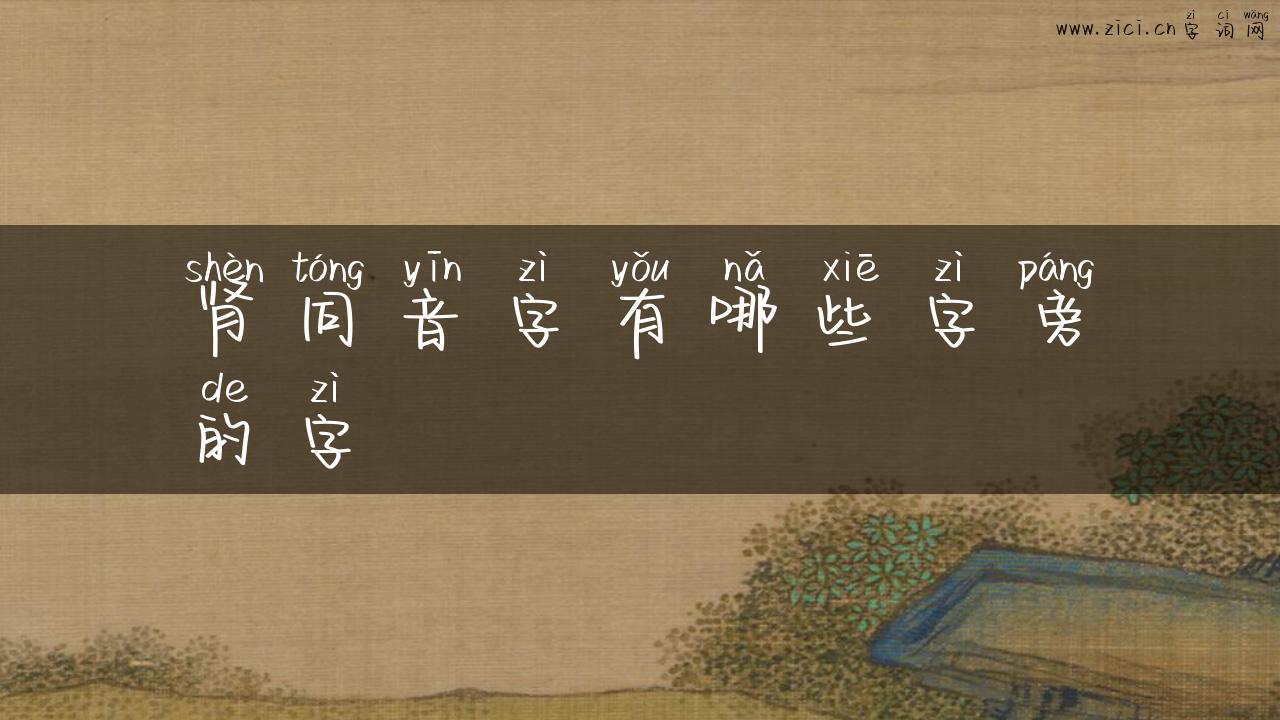 zì cí wǎng
www.zici.cn 字 词 网
shèn tóng yīn zì yǒu nǎ xiē zì páng
肾 同 音 字 有 哪 些 字 旁
de zì
的 字